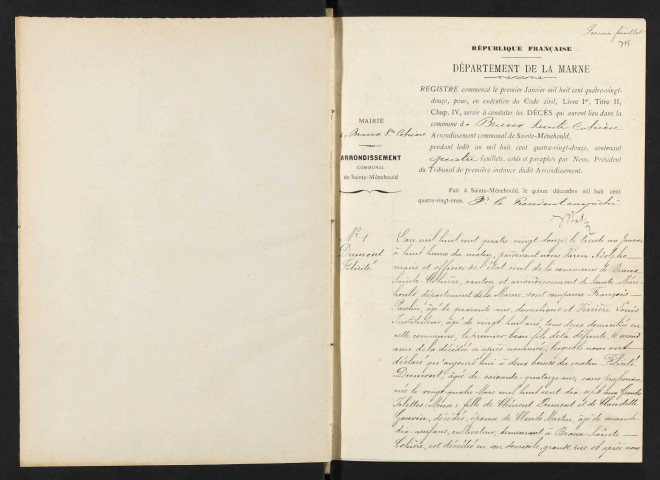 Premier feuillet
RÉPUBLIQUE FRANÇAISE
DÉPARTEMENT DE LA MARNE
REGISTRE commencé le premier Janvier mil huit cent quatre-vingt-
douze, pour, en exécution du Code civil, Livre Ier, Titre II,
Chap. IV, servir à constater les DÉCÈS qui auront lieu dans la
commune de Braux Sainte Cohière
Arrondissement communal de Sainte-Ménehould,
pendant ledit an mil huit cent quatre-vingt-douze, contenant
quatre feuillets, cotés et paraphés par Nous, Président
du Tribunal de première instance dudit Arrondissement.
Fait à Sainte-Ménehould, le quinze décembre mil huit cent
quatre-vingt-onze. Pr le Président empêché
MAIRIE
Braux Ste Cohière
ARRONDISSEMENT
COMMUNAL
de Sainte-Ménehould
No 1
Dumont
Félicité
L'an mil huit cent quatre vingt douze, le trente un Janvier
à huit heures du matin, pardevant nous Adolphe
maire et officier de l'état civil de la commune de Braux
Sainte Cohière, canton et arrondissement de Sainte Méne-
hould, département de la Marne, sont comparus François
Paulin, âgé de quarante ans, domestique et Louis
Instituteur, âgé de vingt huit ans, tous deux domiciliés en
cette commune, le premier beau fils de la défunte, le second
ami de la décédée ci après nommée, lesquels nous ont
déclaré qu'aujourd'hui à deux heures du matin Félicité
Dumont, âgée de soixante-quatorze ans, sans profession
née le vingt quatre Mars mil huit cent dix sept aux Grandes
Islettes (Meuse) fille de Clément Dumont et de Claudette
Gauvin, décédés, épouse de Claude Martin, âgé de soixante-
dix-neuf ans, cultivateur, demeurant à Braux-Sainte-
Cohière, est décédée en son domicile, grande rue et après nous